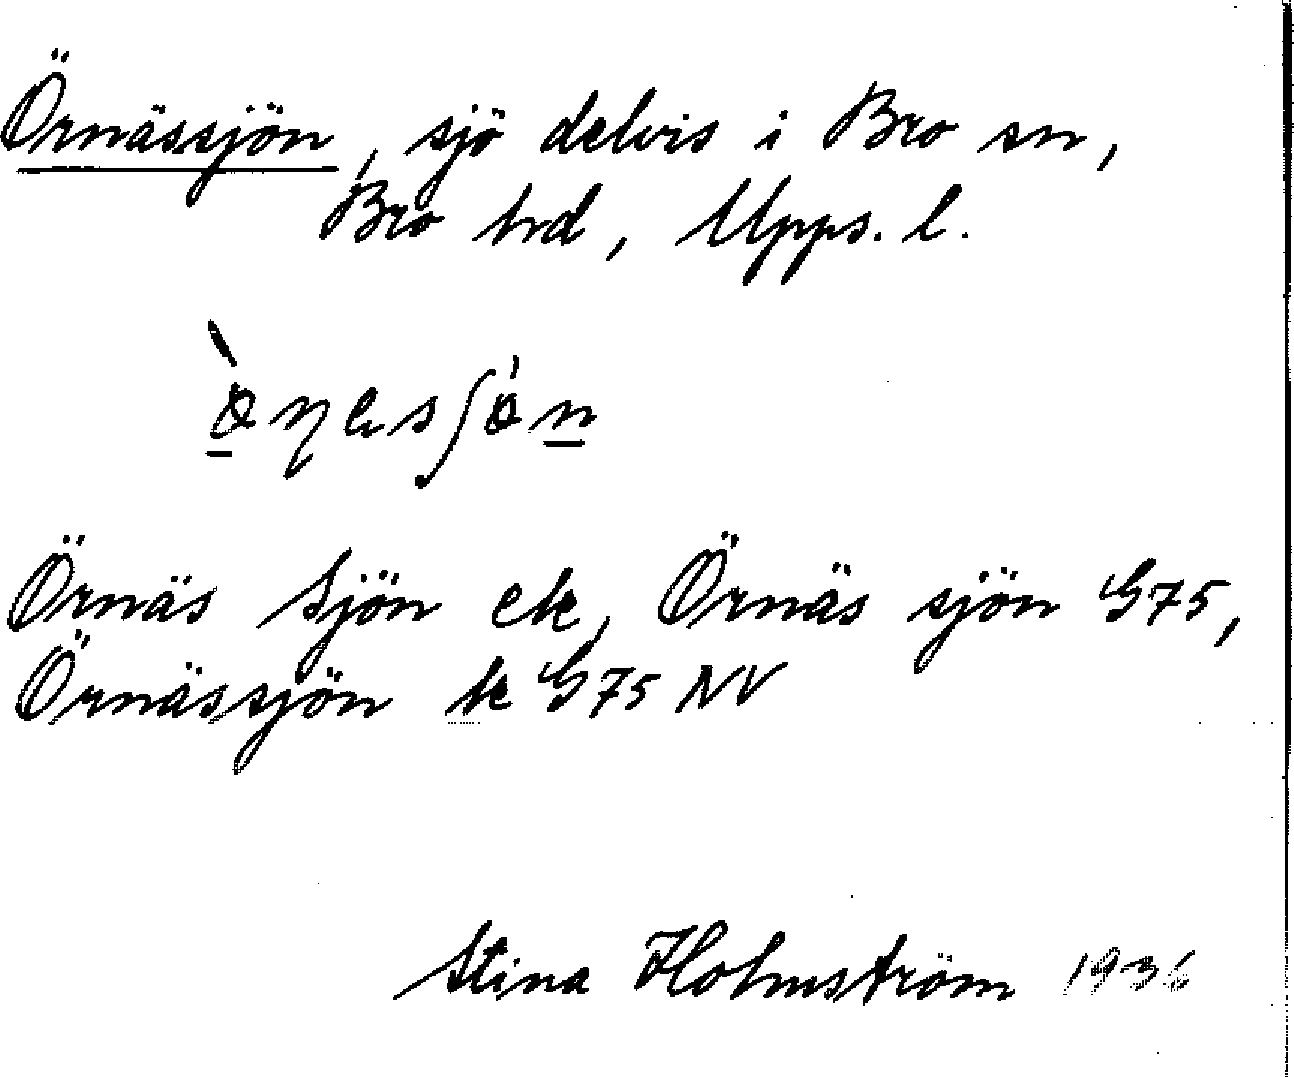 Örnässjön, sjö delvis i Bro sn,
Bro hrd, Upps. l.
Örnäs Sjön ek, Örnäs sjön G75,
Örnässjön tk G75 NV
Stina Holmström 1936